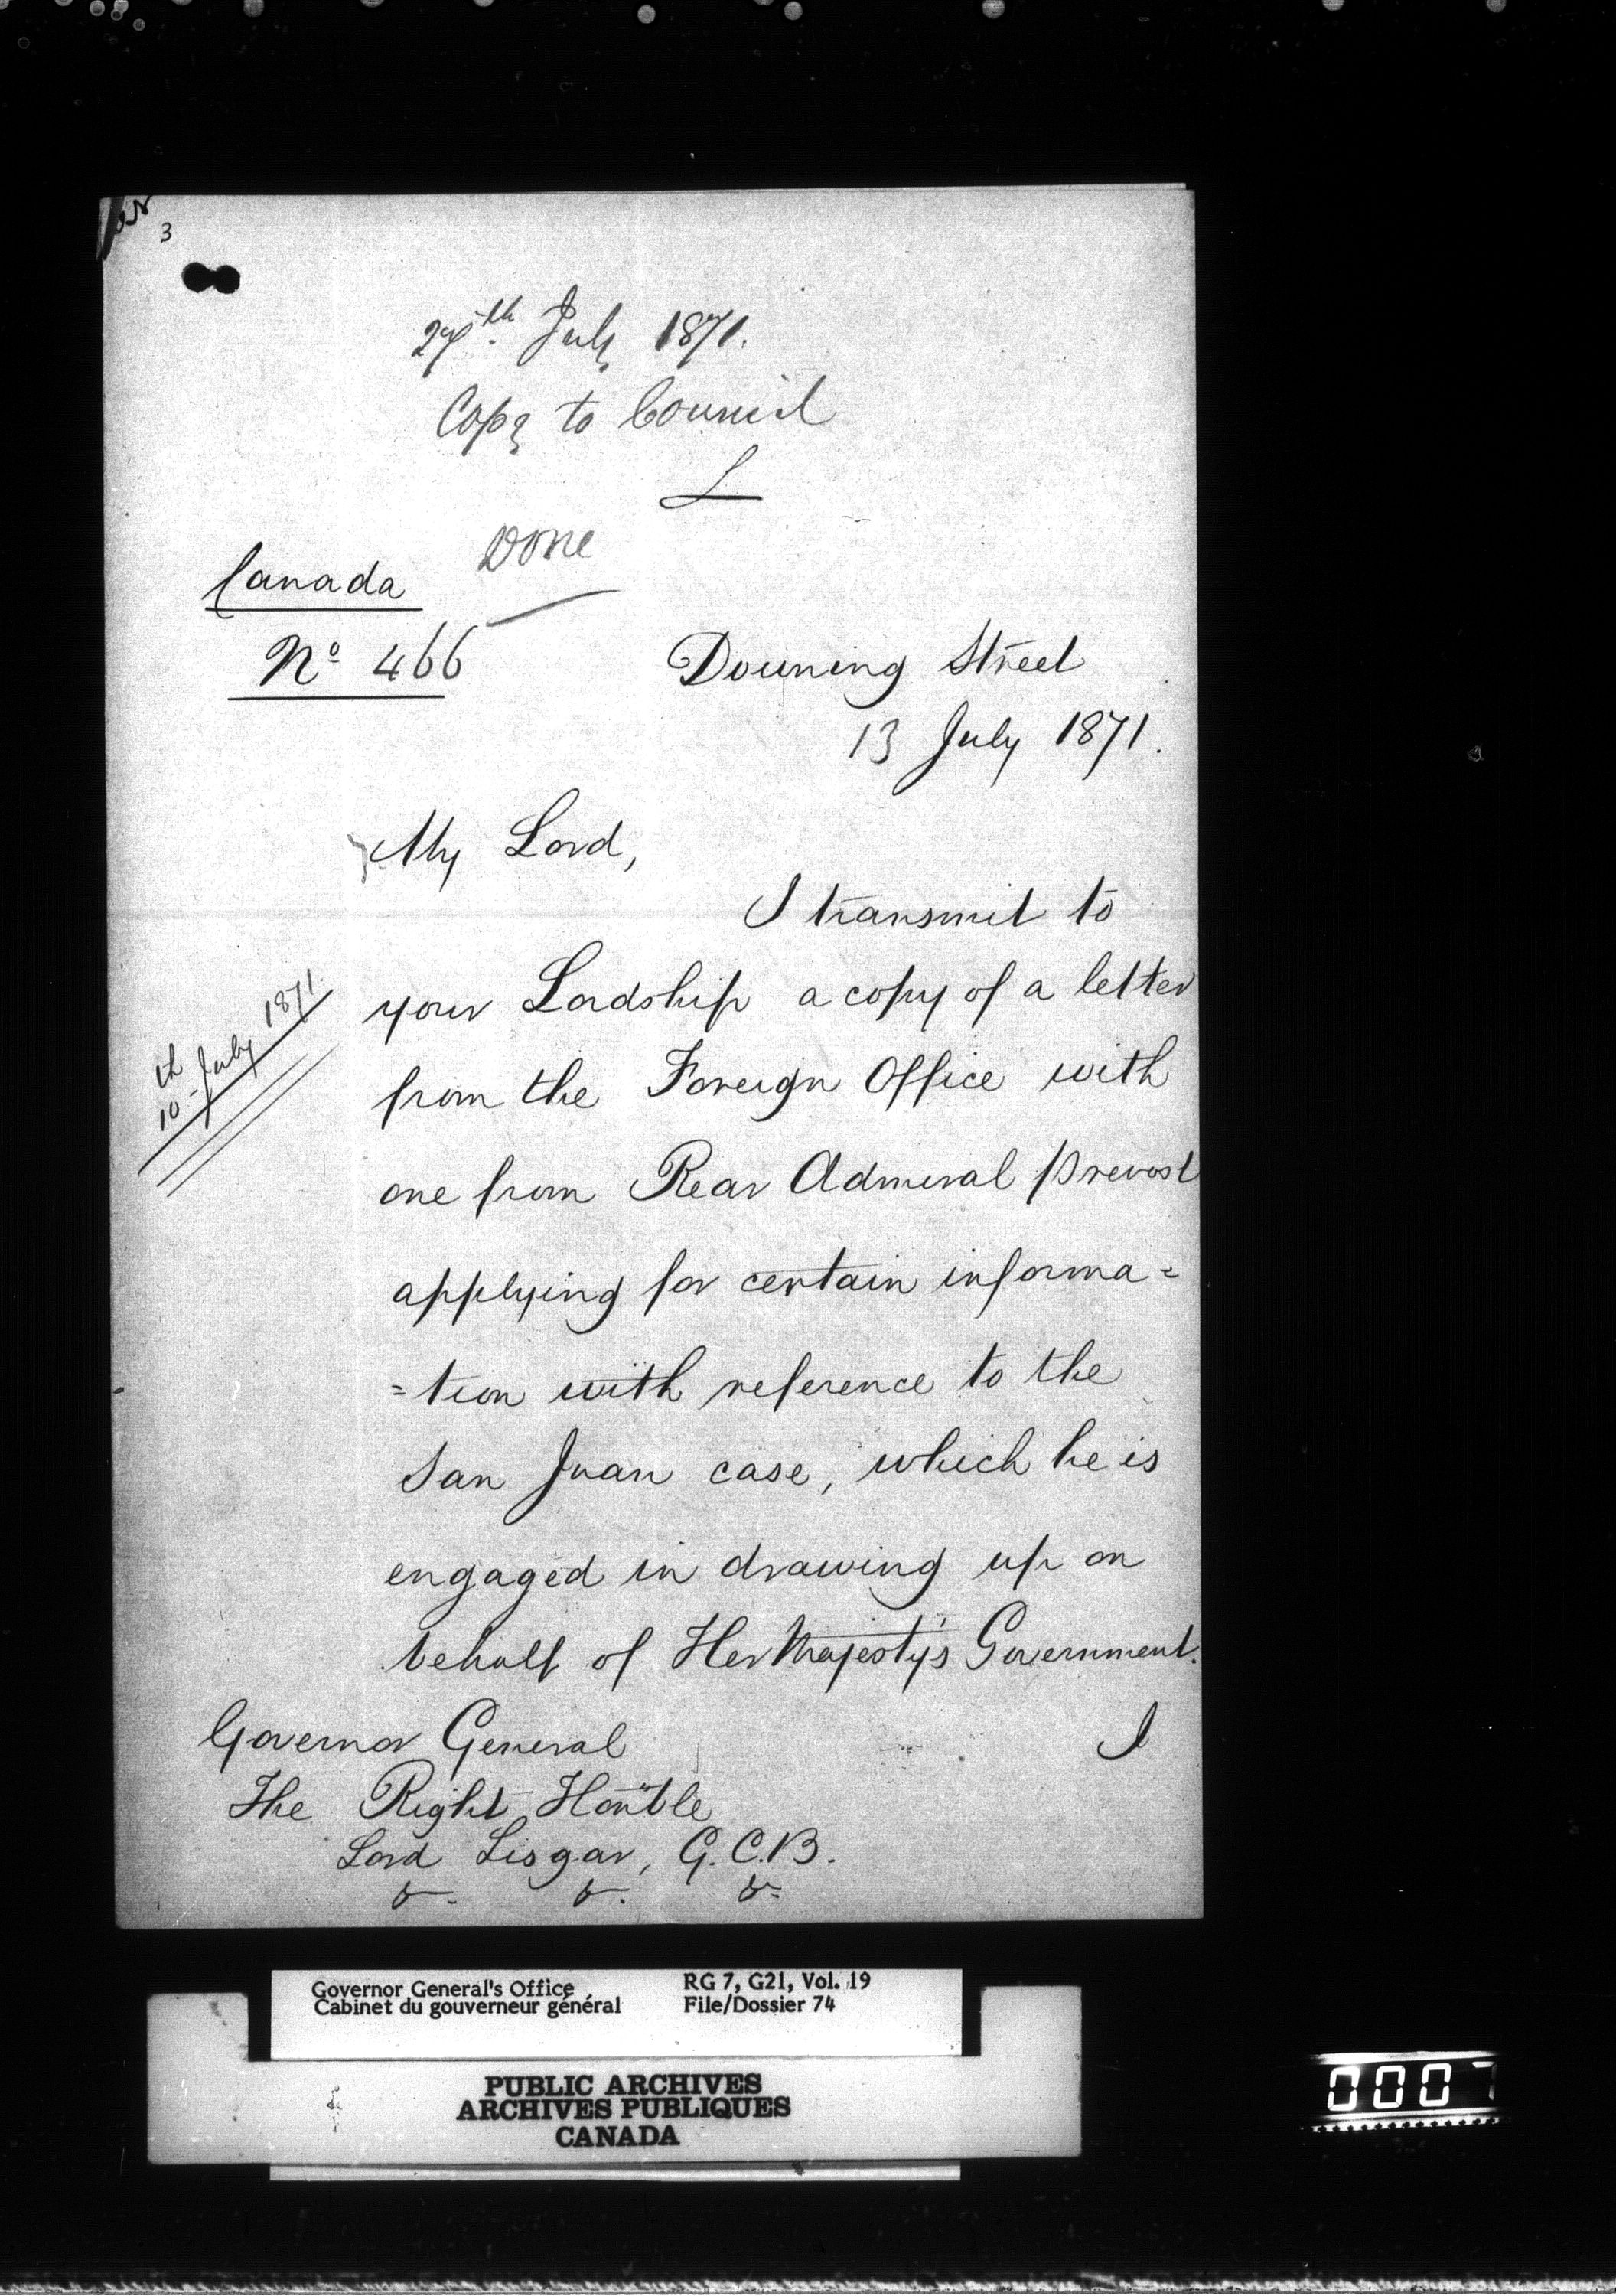 3
27th July 1871.
Copy to Council
L
Done
Canada
No 466
Downing Street
13 July 1871.
My Lord,
I transmit to
your Lordship a copy of a letter
10th July 1871
from the Foreign Office with
one from Rear Admiral Prevost
applying for certain informa=
=tion with reference to the
San Juan case, which he is
engaged in drawing up on
behalf of Her Majesty's Government.
I
Governor General
The Right Honble
Lord Lisgar, G.C.B.
&. &. &.
Governor General's Office
Cabinet du gouverneur général
RG 7, G21, Vol. 19
File/Dossier 74
PUBLIC ARCHIVES
ARCHIVES PUBLIQUES
CANADA
0007